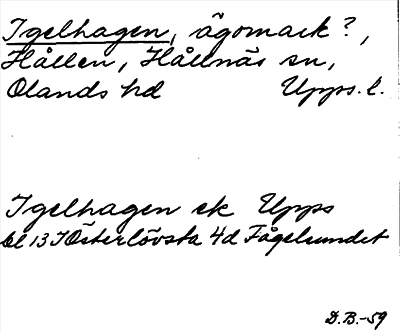 Igelhagen, ägomark?,
Hållen, Hållnäs sn,
Olands hd Upps. l.
Igelhagen ek Upps
bl 13 I Österlövsta 4d Fågelsundet
D.B.-59